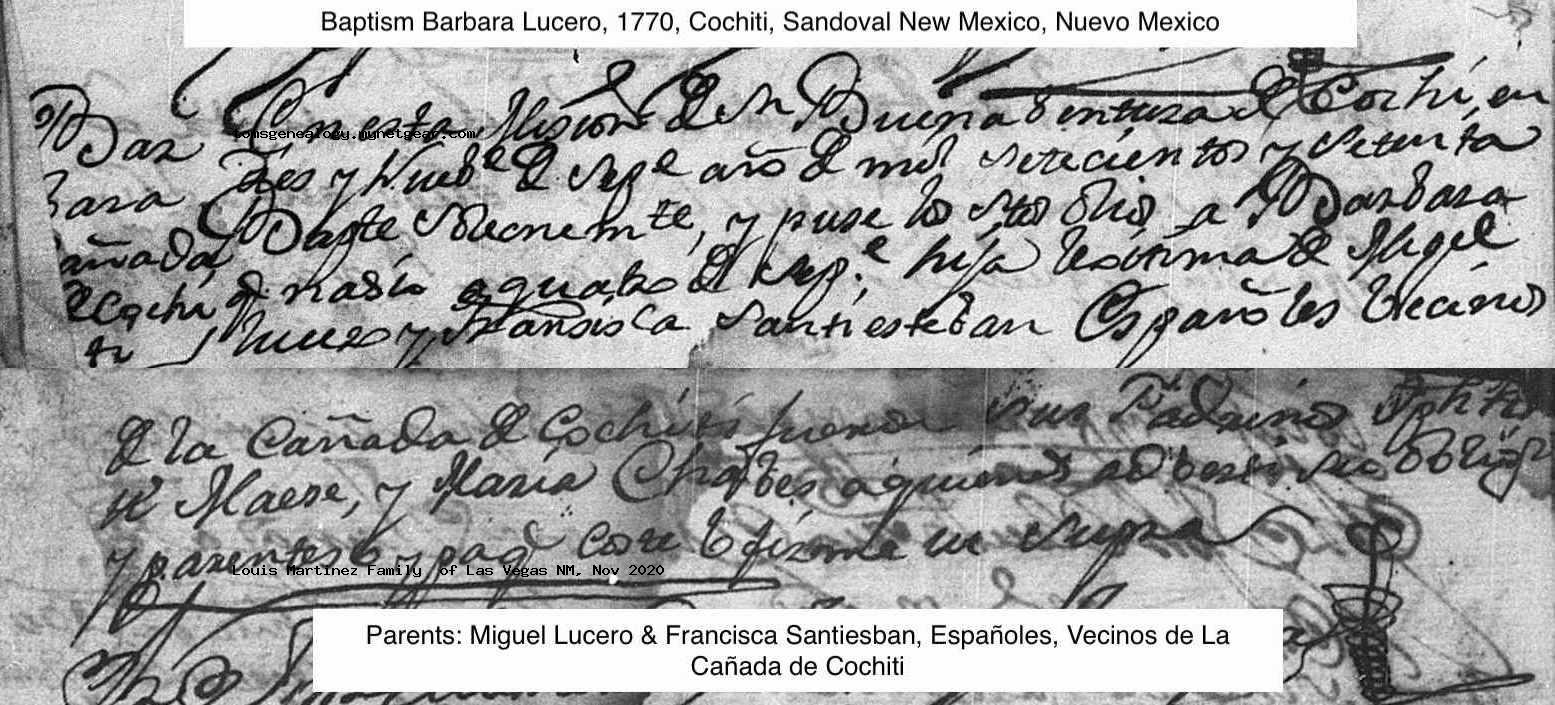 Baptism Barbara Lucero, 1770, Cochiti, Sandoval New Mexico, Nuevo Mexico
Bar En esta Mision de Sn Buena bentura de Cochi, en
bara Dies y Nuebe de Sepe año de mil setecientos y setenta
tomsgenealogy.mynetgear.com
Bapte Solecnemte, y puse los Stos Olios a Barbara
añada
de Cochi q. nasio a quatro de Sepe. hija lexitima de Migel
ti Lucero y Fransisca Santiesteban Españoles becinos
de la Cañada de Cochiti fueron sus Padrinos
Maese, y Maria Chabes a quienes adberti su oblign
y parentesco y paq conste lo firme ut supra
Louis Martinez Family of Las Vegas NM, Nov 2020
Parents: Miguel Lucero & Francisca Santiesban, Españoles, Vecinos de La
Cañada de Cochiti